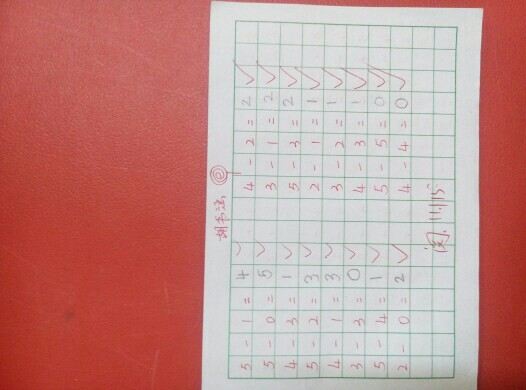 5-1=4 4-2=2
5-0=5 3-1=2
4-3=1 5-3=2
5-2=3 2-1=1
4-1=3 3-2=1
3-3=0 4-3=1
5-4=1 5-5=0
2-0=2 4-4=0
阅